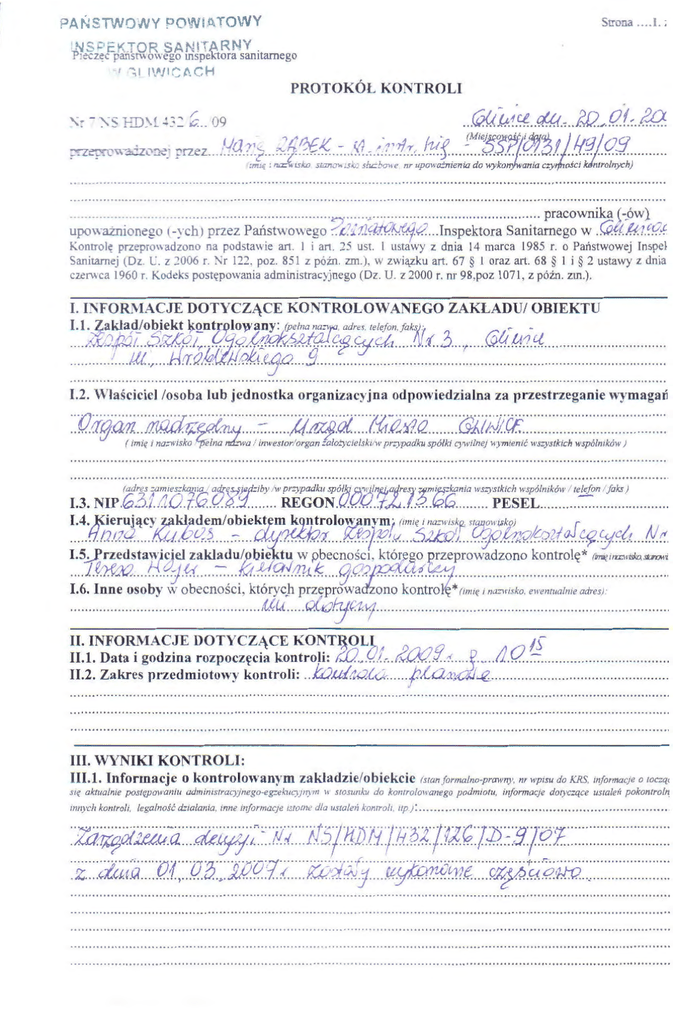 PAŃSTWOWY POWIATOWY
Strona ....1. :
INSPEKTOR SANITARNY
Pieczęć państwowego inspektora sanitarnego
W GLIWICACH
PROTOKÓŁ KONTROLI
Nr 7 NS HDM 432 6 .. 09
Gliwice dn. 20.01.20
(Miejscowość i data)
przeprowadzonej przez. ZĄBEK - - SSP/0131/49/09
(imię i nazwisko, stanowisko służbowe, nr upoważnienia do wykonywania czynności kontrolnych)
pracownika (-ów)
upoważnionego (-ych) przez Państwowego Powiatowego Inspektora Sanitarnego w Gliwicac
Kontrolę przeprowadzono na podstawie art. 1 i art. 25 ust. 1 ustawy z dnia 14 marca 1985 r. o Państwowej Inspek
Sanitarnej (Dz. U. z 2006 r. Nr 122, poz. 851 z późn. zm.), w związku art. 67 § 1 oraz art. 68 § 1 i § 2 ustawy z dnia
czerwca 1960 r. Kodeks postępowania administracyjnego (Dz. U. z 2000 r. nr 98,poz 1071, z późn. zm.).
I. INFORMACJE DOTYCZĄCE KONTROLOWANEGO ZAKŁADU/ OBIEKTU
I.1. Zakład/obiekt kontrolowany: (pełna nazwa, adres, telefon, faks):
Zespół Szkół Ogólnokształcących Nr 3, Gliwice
ul. 9
I.2. Właściciel /osoba lub jednostka organizacyjna odpowiedzialna za przestrzeganie wymagań
Organ nadrzędny - Urząd Miasta GLIWICE
( imię i nazwisko /pełna nazwa / inwestor/organ założycielski/w przypadku spółki cywilnej wymienić wszystkich wspólników )
(adres zamieszkania / adres siedziby /w przypadku spółki cywilnej adresy zamieszkania wszystkich wspólników / telefon / faks )
I.3. NIP 6311076089 REGON 000721566 PESEL
I.4. Kierujący zakładem/obiektem kontrolowanym: (imię i nazwisko, stanowisko)
Anna - dyrektor Zespołu Szkół Ogólnokształcących Nr
I.5. Przedstawiciel zakładu/obiektu w obecności, którego przeprowadzono kontrolę* (imię i nazwisko, stanowi
Teresa - kierownik gospodarczy
I.6. Inne osoby w obecności, których przeprowadzono kontrolę* (imię i nazwisko, ewentualnie adres):
nie dotyczy
II. INFORMACJE DOTYCZĄCE KONTROLI
II.1. Data i godzina rozpoczęcia kontroli: 20.01.2009r. g 10 15
II.2. Zakres przedmiotowy kontroli: kontrola planowa
III. WYNIKI KONTROLI:
III.1. Informacje o kontrolowanym zakładzie/obiekcie (stan formalno-prawny, nr wpisu do KRS, informacje o tocząc
się aktualnie postępowaniu administracyjnego-egzekucyjnym w stosunku do kontrolowanego podmiotu, informacje dotyczące ustaleń pokontroln
innych kontroli, legalność działania, inne informacje istotne dla ustaleń kontroli, itp.):
Zarządzenia decyzji Nr NS/HDM/432/126/D-9/07
z dnia 01.03.2007r zostały wykonane częściowo.